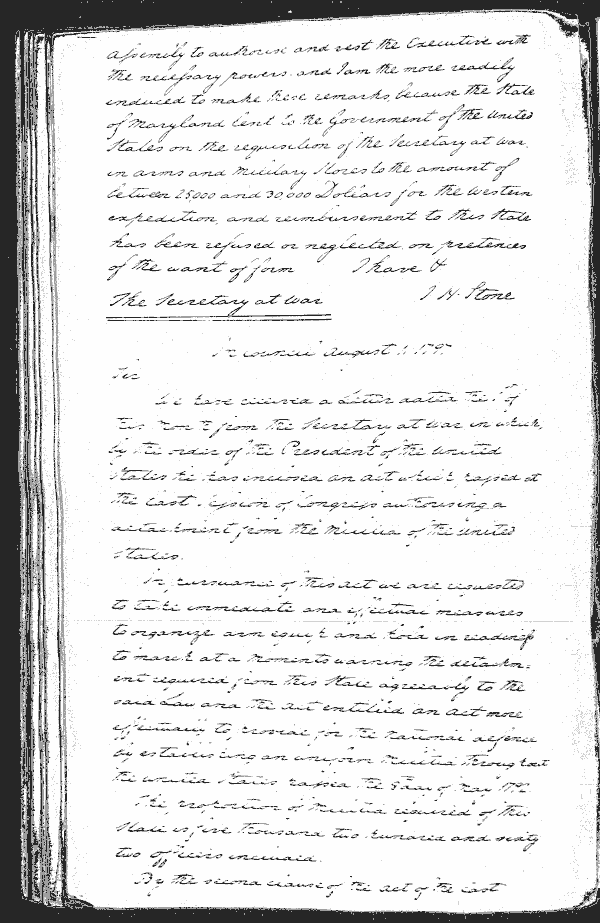 assembly to authorise and vest the Executive with
the necessary powers. and I am the more readily
induced to make these remarks, because the State
of Maryland lent to the Government of the United
States on the requisition of the Secretary at War,
in arms and Military Stores to the amount of
between 25,000 and 30,000 Dollars for the Western
expedition, and reimbursement to this State
has been refused or neglected, on pretences
of the want of form I have &
The Secretary at War
J H. Stone
In council August 1. 179
Sir
We have received a Letter dated the of
this from the Secretary at War in which,
by the order of the President of the United
States he has inclosed an act which passed at
the last Session of Congress authorising a
detachment from the Militia of the United
States.
In pursuance of this act we are requested
to take immediate and effectual measures
to organize arm equip and hold in readiness
to march at a moments warning the detachm-
ent required from this State agreeably to the
said Law and the act entitled an act more
effectually to provide for the national defence
by establishing an uniform Militia throughout
the United States passed the 8 day of May 1792
The proportion of Militia required of this
State is five thousand two hundred and sixty
two officers included.
By the second clause of the act of the last